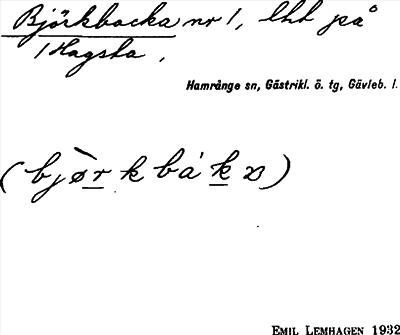 Björkbacka nr 1, lht på
1 Hagsta,
Hamrånge sn, Gästrikl. ö. tg, Gävleb. l.
(bjørkbákɒ)
EMIL LEMHAGEN 1932